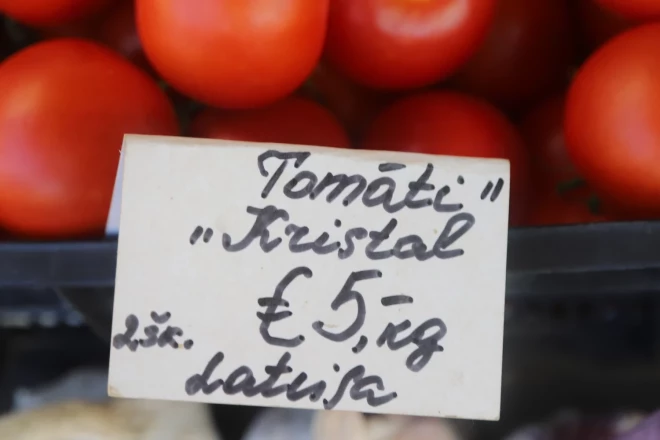 Tomāti"
"Kristal
€ 5,- kg
2,šk.
Latvija